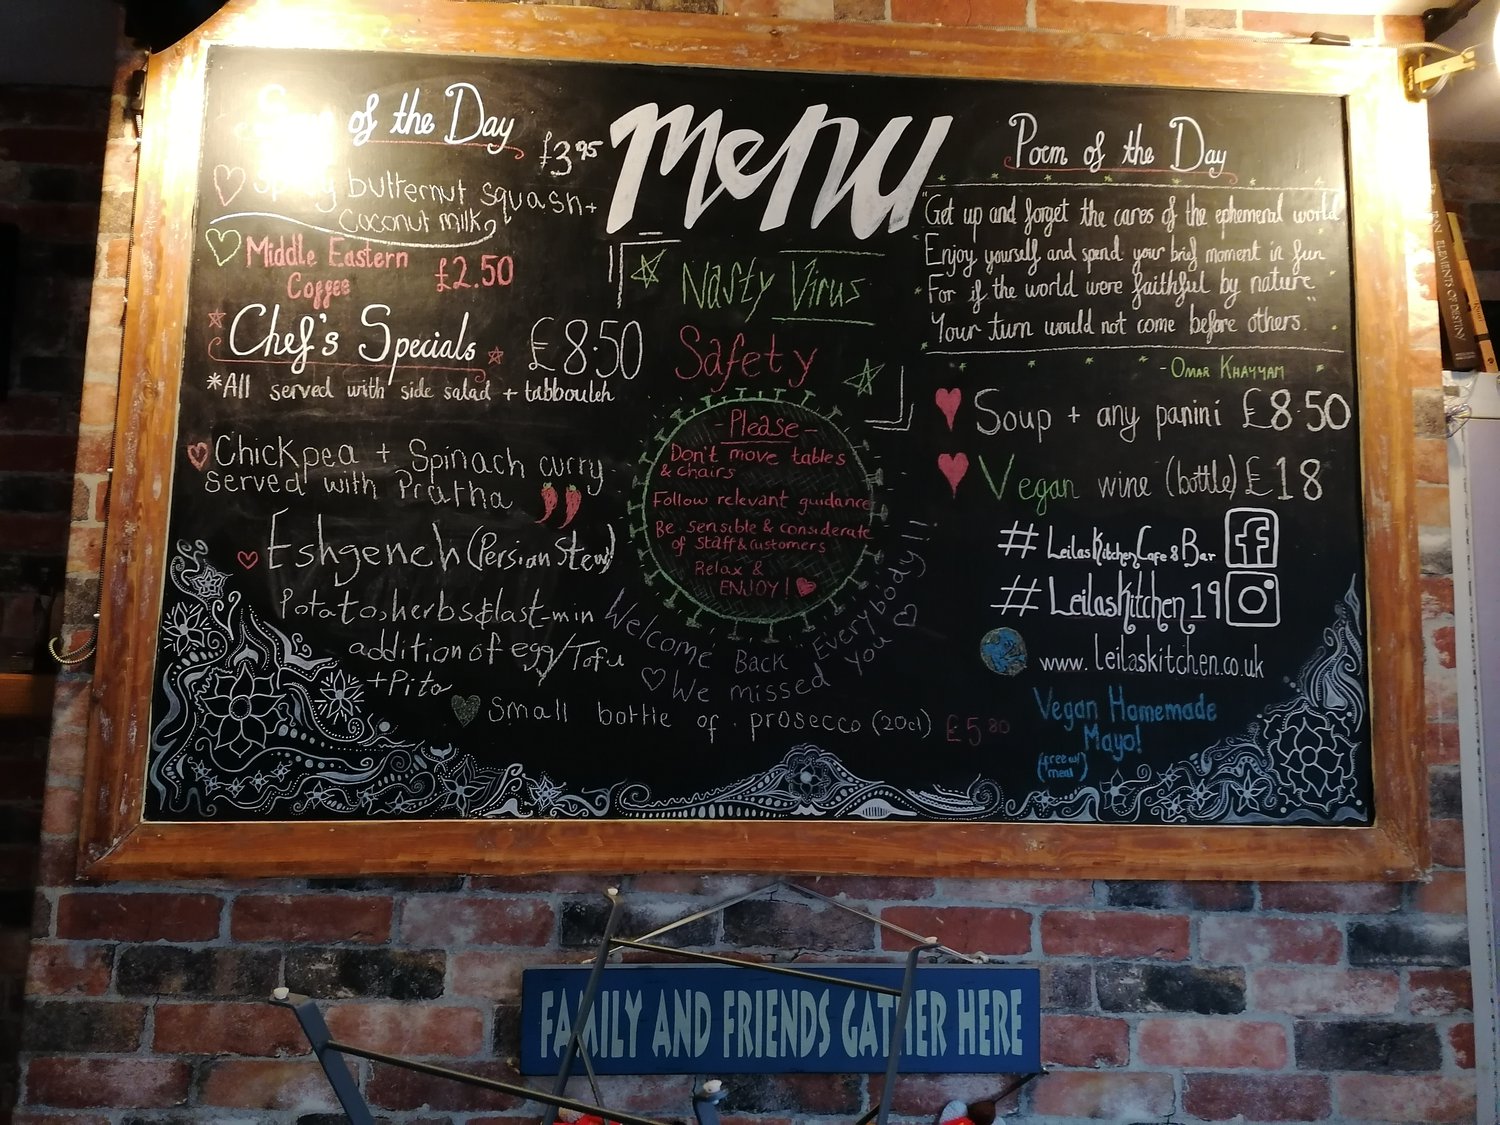 of the Day
£3.95
butternut squash +
coconut milk
Middle Eastern
Coffee £2.50
Chef's Specials £8.50
*All served with side salad + tabbouleh
Chickpea + Spinach curry
served with Pratha
Eshgeneh (Persian Stew)
Potato, herbs & last-min
addition of egg/Tofu
+ Pita
Small bottle of prosecco (20cl) £5.80
menu
Nasty Virus
Safety
- Please -
Don't move tables
& chairs
Follow relevant guidance
Be sensible & considerate
of Staff & Customers
Relax &
ENJOY!
Welcome Back Everybody!!
We missed you
Poem of the Day
"Get up and forget the cares of the ephemeral world
Enjoy yourself and spend your brief moment in fun
For if the world were faithful by nature
Your turn would not come before others."
- OMAR KHAYYAM
Soup + any panini £8.50
Vegan wine (bottle) £18
# LeilasKitchenCafe&Bar
# LeilasKitchen19
www.leilaskitchen.co.uk
Vegan Homemade
Mayo!
(free w/
meal)
ELEMENTS OF DESTINY
FAMILY AND FRIENDS GATHER HERE